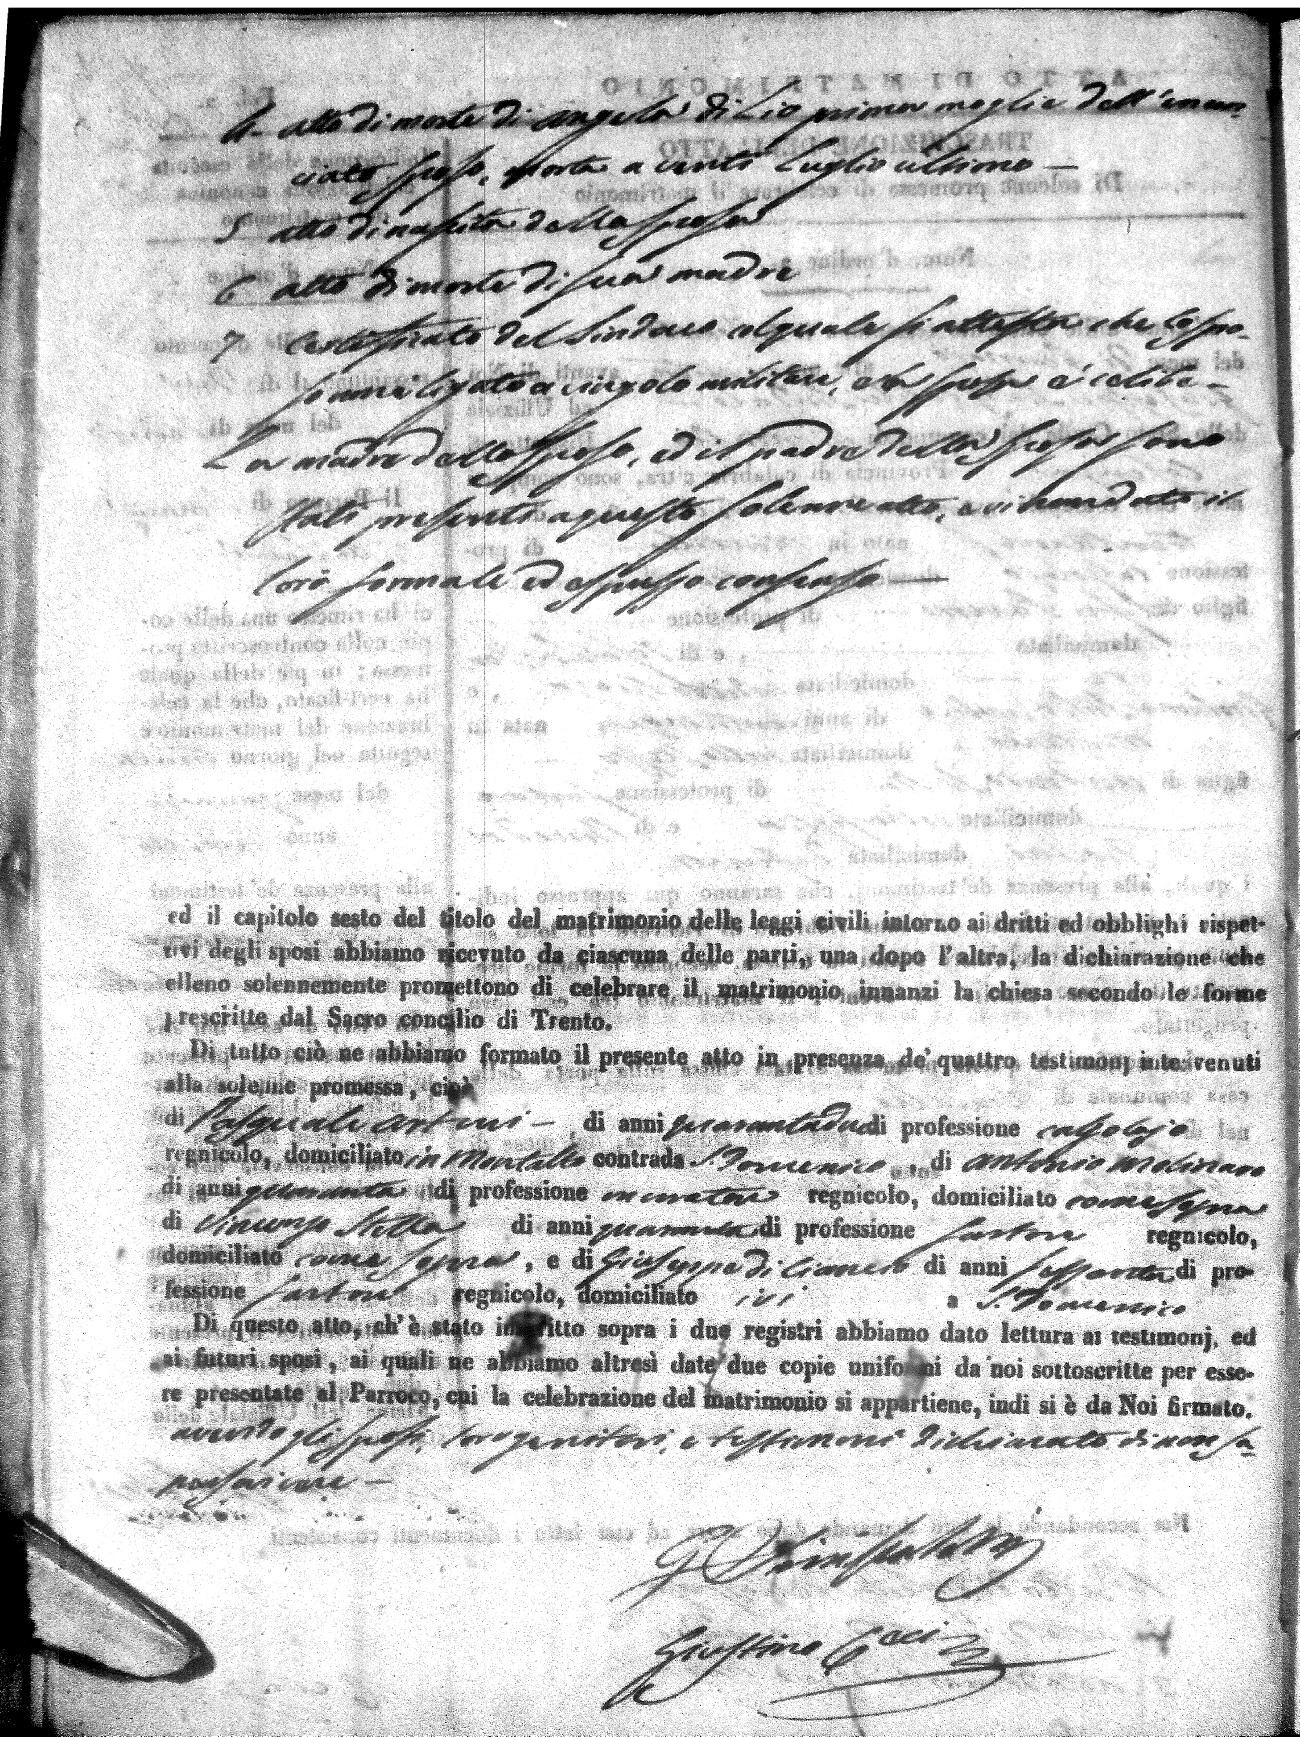 4 atto di morte di Angela di Lio prima moglie dell'enun=
ciato sposo, morta a venti Luglio ultimo —
5 atto di nascita della sposa
6 atto di morte di sua madre
7 Certificato del Sindaco col quale si attesta che lo spo=
so non è legato a cingolo militare, e la sposa è celibe —
La madre dello sposo, ed il padre della sposa sono
stati presenti a questo solenne atto, e vi hanno dato il
loro formale ed espresso consenso —
ed il capitolo sesto del titolo del matrimonio delle leggi civili intorno ai dritti ed obblighi rispet-
tivi degli sposi abbiamo ricevuto da ciascuna delle parti, una dopo l'altra, la dichiarazione che
elleno solennemente promettono di celebrare il matrimonio innanzi la chiesa secondo le forme
prescritte dal Sacro concilio di Trento.
Di tutto ciò ne abbiamo formato il presente atto in presenza de' quattro testimonj intervenuti
alla solenne promessa, cioè
di Pasquale — di anni quarantadue di professione calzolajo
regnicolo, domiciliato in Montalto contrada S. Domenico, di Antonio Molinaro
di anni quaranta di professione regnicolo, domiciliato come sopra
di Vincenzo Stella di anni quaranta di professione sartore regnicolo,
domiciliato come sopra, e di Giuseppe di anni sessanta di pro-
fessione sartore regnicolo, domiciliato ivi a S. Domenico
Di questo atto, ch'è stato inscritto sopra i due registri abbiamo dato lettura ai testimonj, ed
ai futuri sposi, ai quali ne abbiamo altresì date due copie uniformi da noi sottoscritte per esse-
re presentate al Parroco, cui la celebrazione del matrimonio si appartiene, indi si è da Noi firmato.
avendo gli sposi, loro genitori, e testimoni dichiarato di non sa=
per scrivere —
Giustino